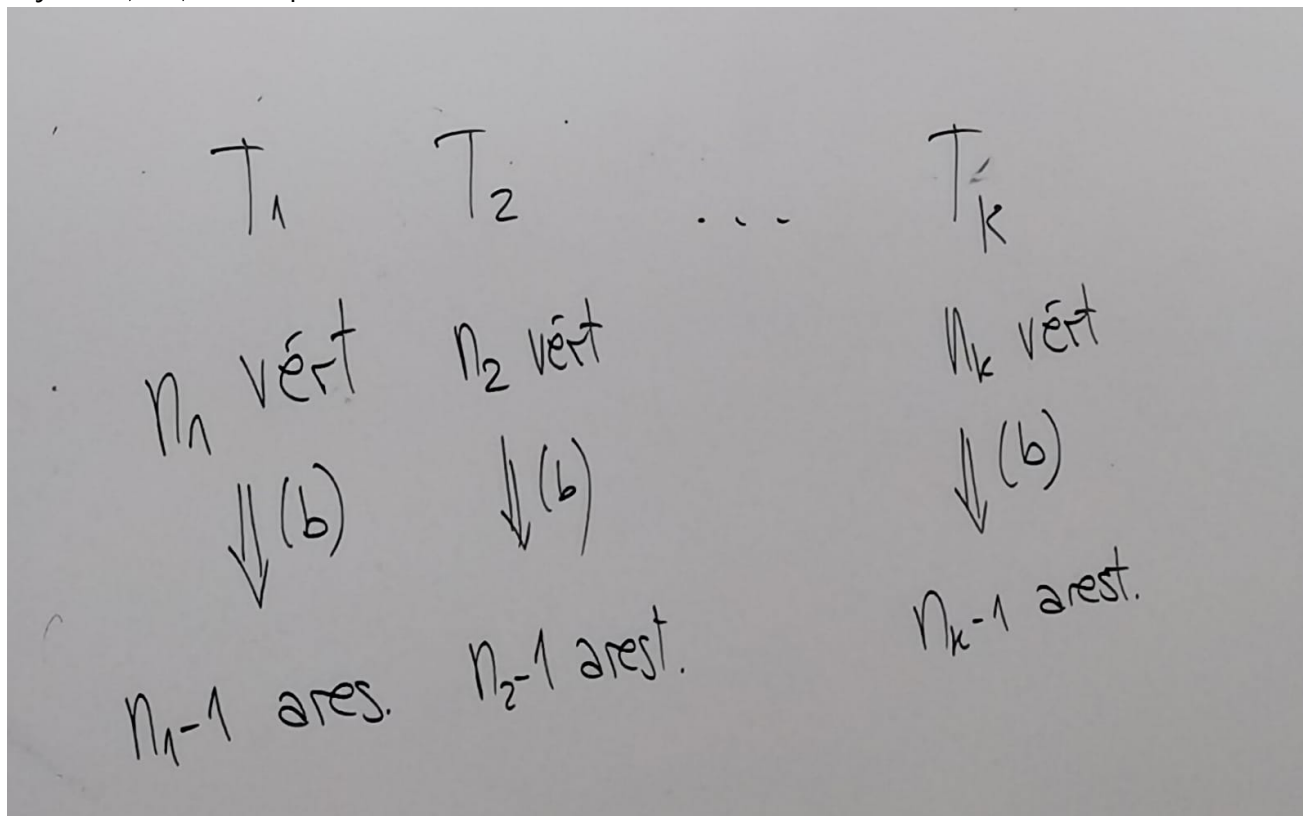 T₁ T₂ ... Tₖ
n₁ vért n₂ vért nₖ vért
⇓(b) ⇓(b) ⇓(b)
n₁-1 ares. n₂-1 arest. nₖ-1 arest.